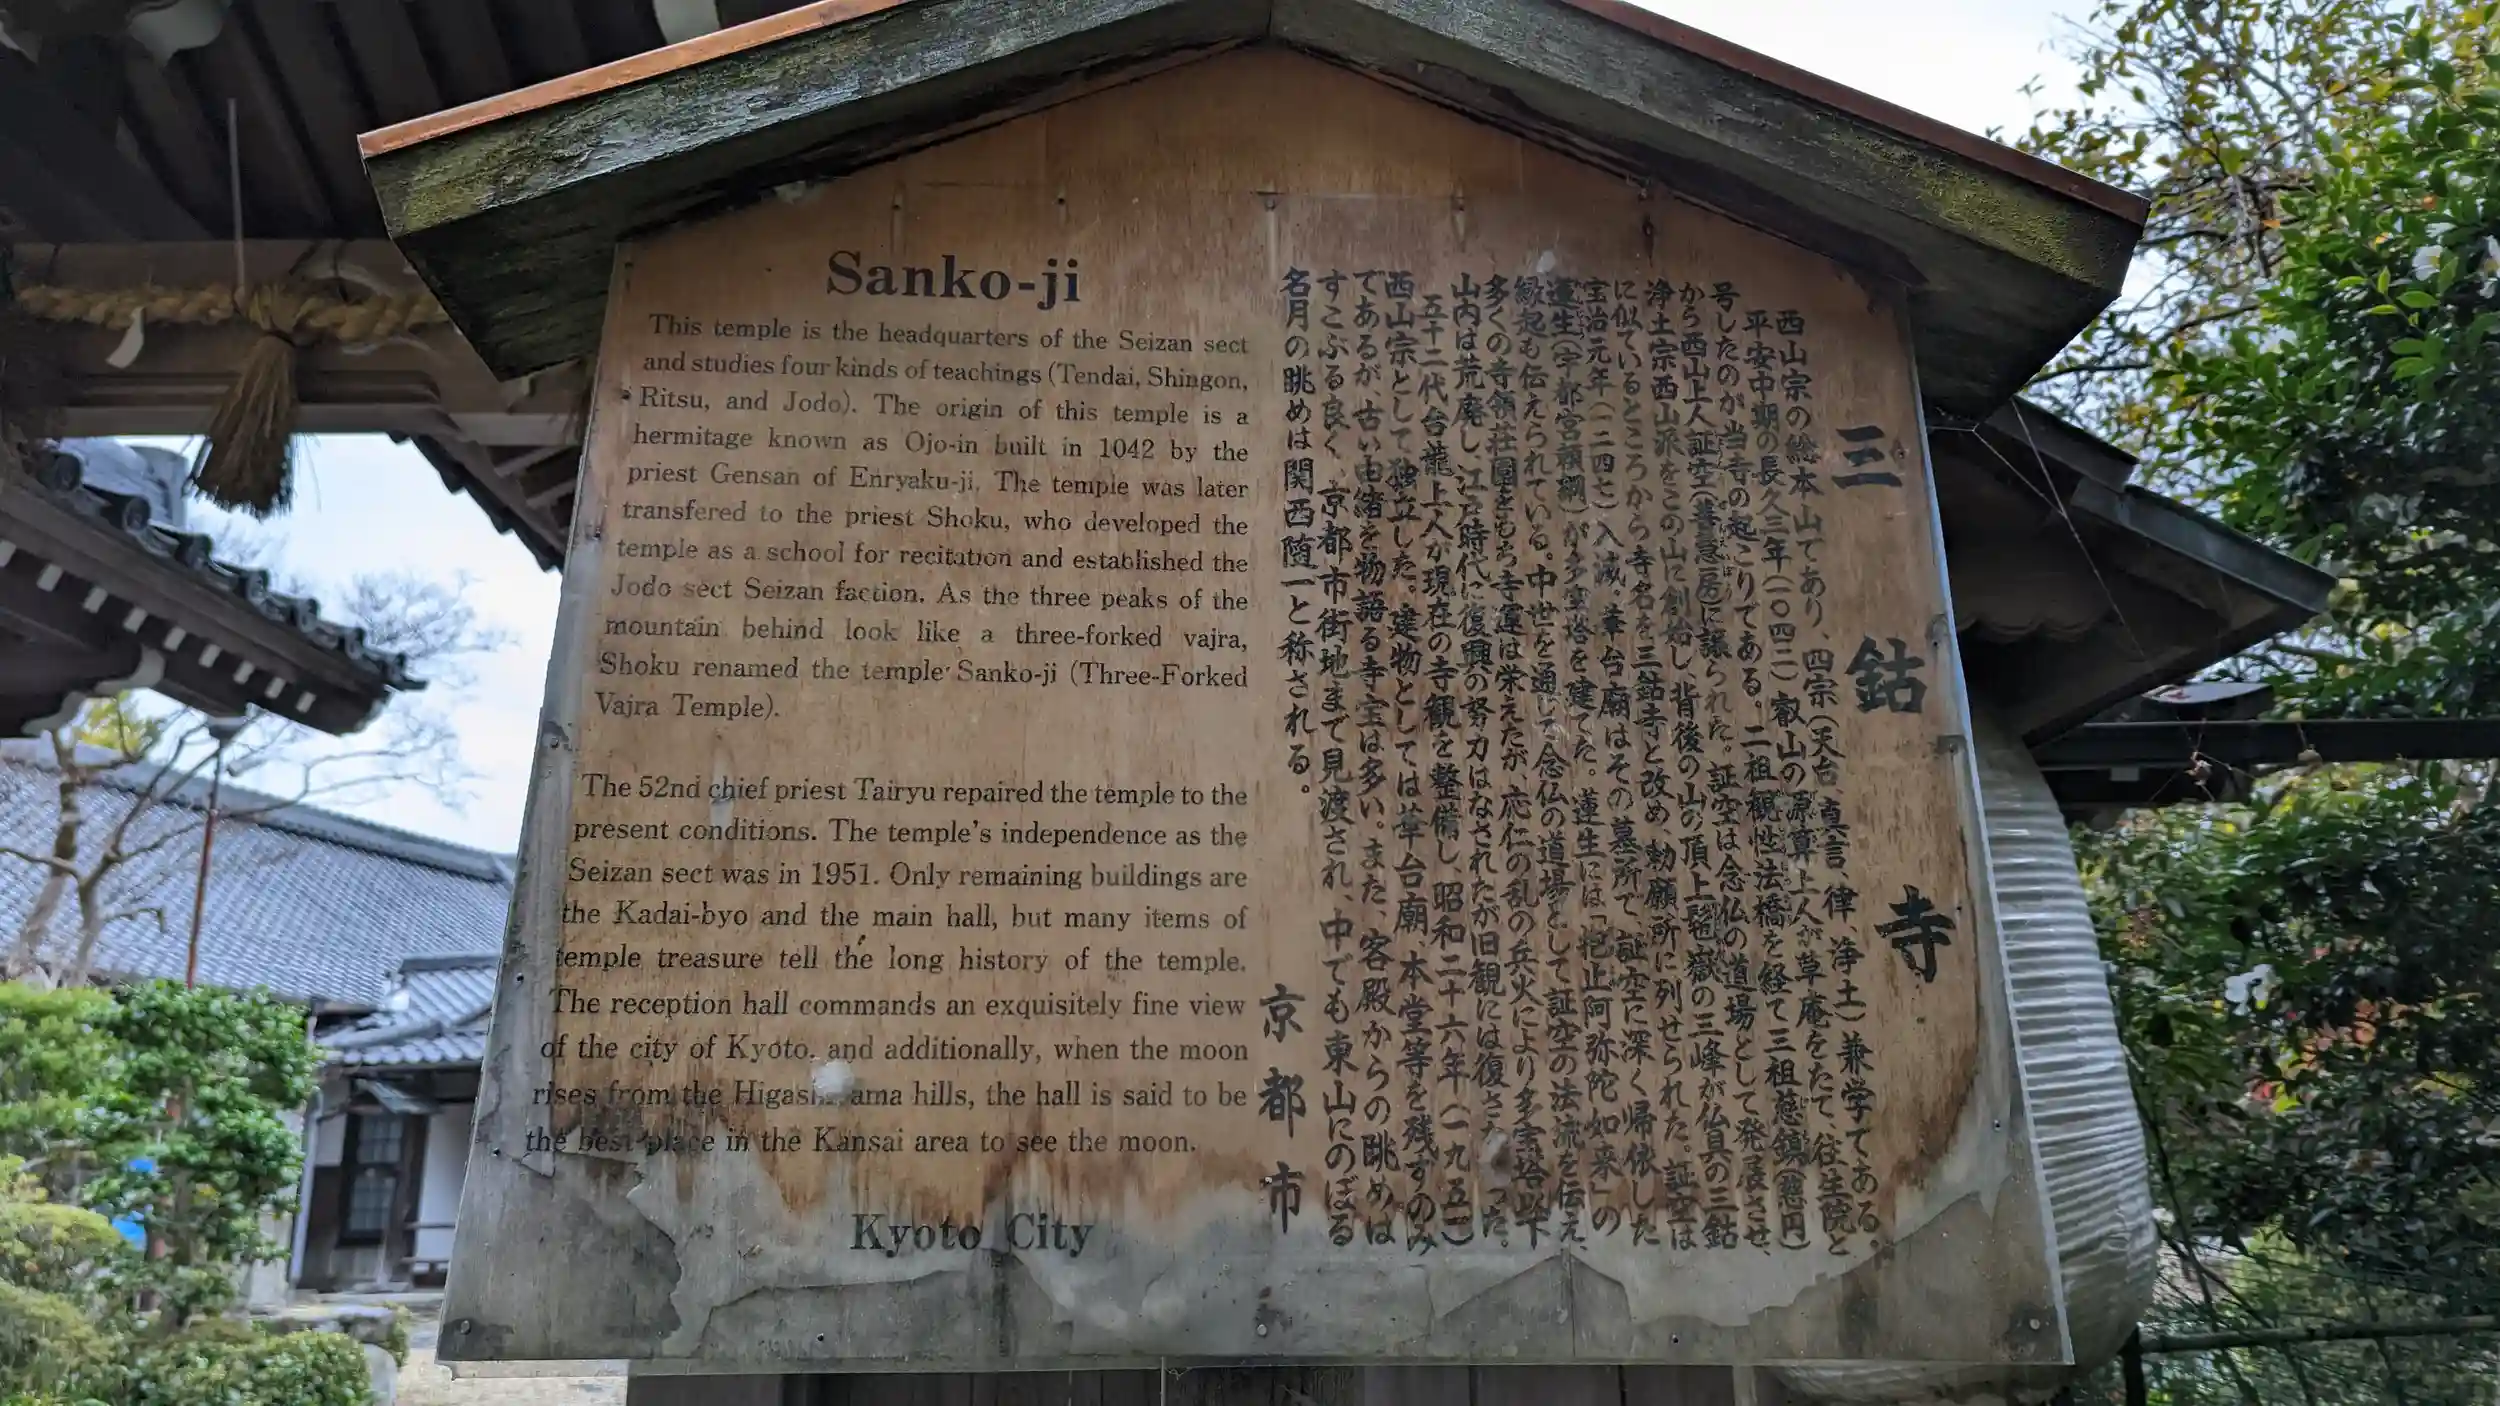 Sanko-ji
This temple is the headquarters of the Seizan sect
and studies four kinds of teachings (Tendai, Shingon,
Ritsu, and Jodo). The origin of this temple is a
hermitage known as Ojo-in built in 1042 by the
priest Gensan of Enryaku-ji. The temple was later
transfered to the priest Shoku, who developed the
temple as a school for recitation and established the
Jodo sect Seizan faction. As the three peaks of the
mountain behind look like a three-forked vajra,
Shoku renamed the temple Sanko-ji (Three-Forked
Vajra Temple).
The 52nd chief priest Tairyu repaired the temple to the
present conditions. The temple's independence as the
Seizan sect was in 1951. Only remaining buildings are
the Kadai-byo and the main hall, but many items of
temple treasure tell the long history of the temple.
The reception hall commands an exquisitely fine view
of the city of Kyoto, and additionally, when the moon
rises from the Higashiyama hills, the hall is said to be
the best place in the Kansai area to see the moon.
Kyoto City
三鈷寺
西山宗の総本山であり、四宗(天台、真言、律、浄土)兼学である。
平安中期の長久三年(一〇四二)叡山の源算上人が草庵をたて、往生院と
号したのが当寺の起こりである。二祖観性法橋を経て三祖慈鎮(慈円)
から西山上人証空(善慧房)に譲られた。証空は念仏の道場として発展させ、
浄土宗西山派をこの山に創始し、背後の山の頂上鬆嶽の三峰が仏具の三鈷
に似ているところから寺名を三鈷寺と改め、勅願所に列せられた。証空は
宝治元年(一二四七)入滅。華台廟はその墓所で、証空に深く帰依した
蓮生(宇都宮頼綱)が多宝塔を建てた。蓮生には「抱止阿弥陀如来」の
縁起も伝えられている。中世を通して念仏の道場として証空の法流を伝え、
多くの寺領荘園をもち寺運は栄えたが、応仁の乱の兵火により多宝塔以下
山内は荒廃し、江戸時代に復興の努力はなされたが旧観には復さなかった。
五十二代台龍上人が現在の寺観を整備し、昭和二十六年(一九五一)
西山宗として独立した。建物としては華台廟、本堂等を残すのみ
であるが、古い由緒を物語る寺宝は多い。また、客殿からの眺めは
すこぶる良く、京都市街地まで見渡され、中でも東山にのぼる
名月の眺めは関西随一と称される。
京都市